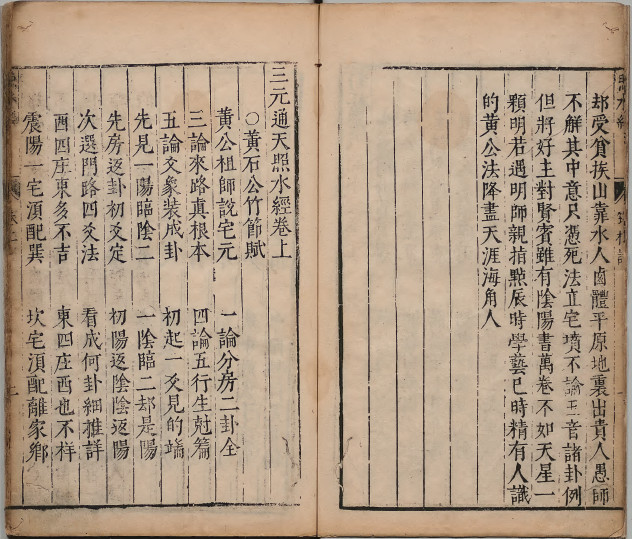 却受貧挨山靠水人鹵體平原地裏出貴人愚師
不觧其中意只凴死法立宅墳不論五音諸卦例
但將好主對賢賓雖有陰陽書萬卷不如天星一
顆明若遇明師親指㸃辰時學藝巳時精有人識
的黄公法降盡天涯海角人
三元通天照水經卷上
○黄石公竹節賦
黄公祖師說宅元 一論分房二卦全
三論來路真根本 四論五行生尅篇
五論爻象裝成卦 初起一爻見的端
先見一陽臨陰二 一陰臨二却是陽
先房返卦初爻定 初陽返陰陰返陽
次選門路四爻法 看成何卦細推詳
酉四庄東多不吉 東四庄酉也不祥
震陽一宅湏配巽 坎宅湏配離家鄉